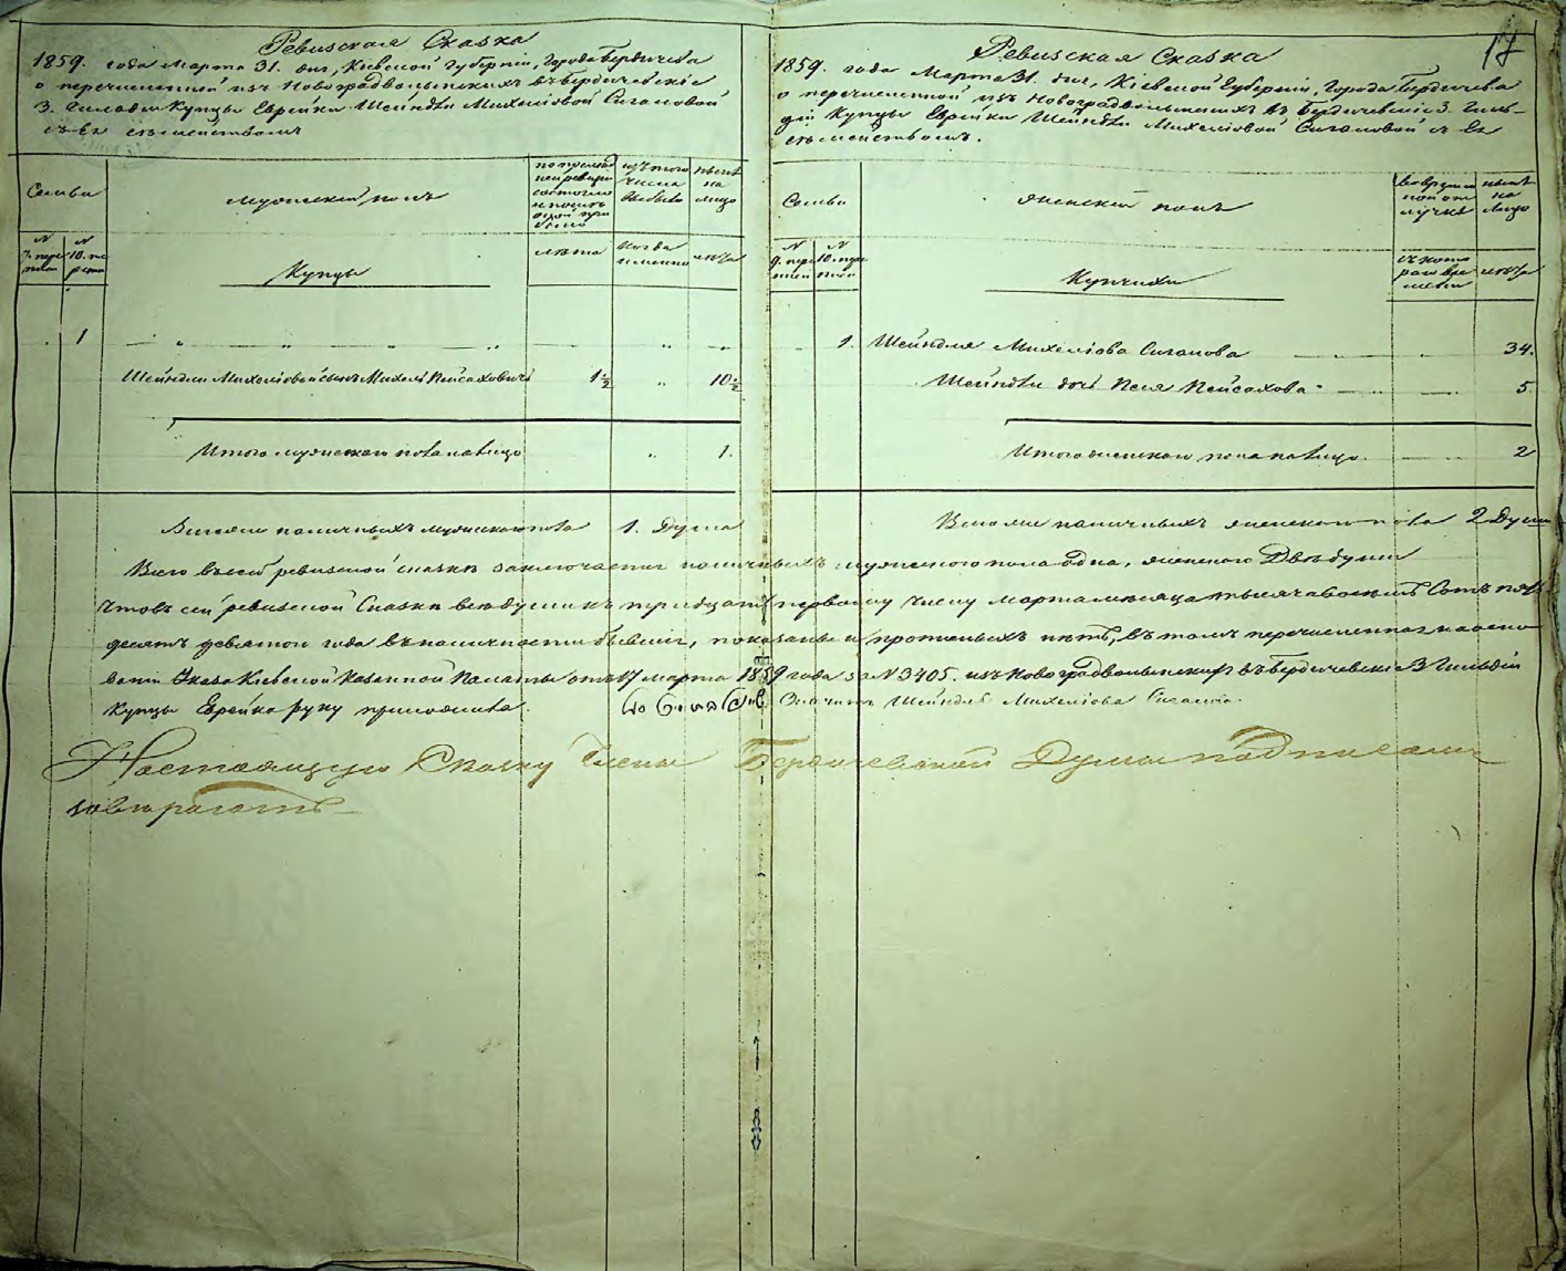 17
Ревизская Сказка
1859. года Марта 31. дня, Кіевской Губерніи, Города Бердичева
о перечисленной изъ Новоградволынскихъ въ Бердичевскіе
3. Гильдіи Купцы Еврейки Шейндли Михеліовой Сигаловой
съ Ея семействомъ
Семьи
мужескій полъ
по последней ревизіи состояло и после оной прибыло
изъ того числа выбыло
ныне на лицо
№ 9. переписи
№ 10. переписи
Купцы
лета
когда именно
лета
1
Шейндли Михеліовой сынъ Михель Пейсаховичъ 1½ „ 10½
Итого мужескаго пола на лицо „ 1.
Ревизская Сказка
1859. года Марта 31. дня, Кіевской Губерніи, Города Бердичева
о перечисленной изъ Новоградволынскихъ въ Бердичевскіе 3. Гиль-
діи Купцы Еврейки Шейндли Михеліовой Сигаловой съ Ея
семействомъ.
Семьи
женскій полъ
во временной отлучке
ныне на лицо
№ 9. переписи
№ 10. переписи
Купчихи
съ котораго времени
лета
1. Шейндля Михеліова Сигалова 34.
Шейндли дочь Песя Пейсахова 5
Итого женскаго пола на лицо 2
Всего же наличныхъ мужескаго пола 1. Душа
Всего же наличныхъ женскаго пола 2 Души
Всего въ сей ревизской сказке заключается наличныхъ мужескаго пола одна, женскаго Две души
Что въ сей ревизской Сказке все души къ тридцать первому числу марта месяца тысяча восемь Сотъ пять
десятъ девятого года въ наличности бывшіе, показаны и прописныхъ нетъ, въ томъ перечисленная на осно
ваніи Указа Кіевской Казенной Палаты отъ 17 марта 1859 года за № 3405. изъ Новоградволынскихъ въ Бердичевскіе 3 Гильдіи
Купцы Еврейка руку приложила. Значитъ Шейндля Михеліова Сигалова.
Настоящую Сказку Члены Бердичевской Думы подписали